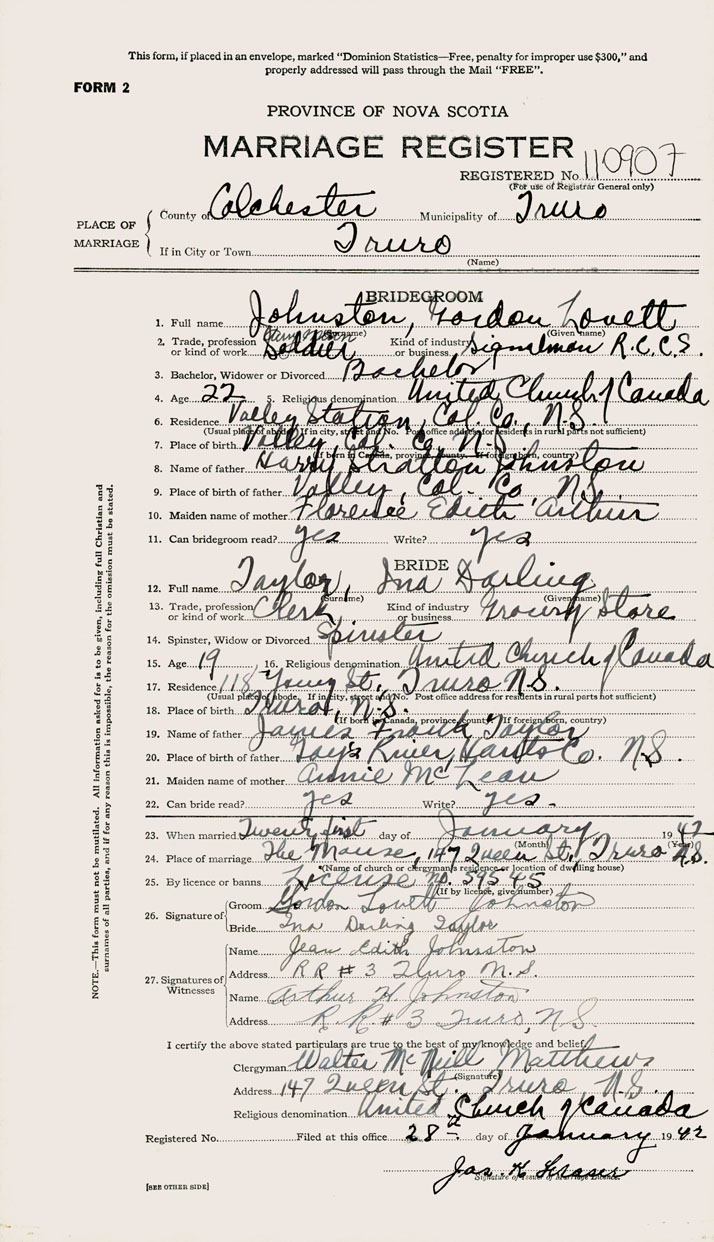 This form, if placed in an envelope, marked "Dominion Statistics—Free, penalty for improper use $300," and
properly addressed will pass through the Mail "FREE".
FORM 2
PROVINCE OF NOVA SCOTIA
MARRIAGE REGISTER
REGISTERED No. 110907
(For use of Registrar General only)
PLACE OF MARRIAGE
County of Colchester Municipality of Truro
If in City or Town Truro
(Name)
BRIDEGROOM
1. Full name Johnston, Gordon Lovett
(Surname) (Given name)
2. Trade, profession or kind of work Soldier Kind of industry or business Signalman R.C.C.S.
3. Bachelor, Widower or Divorced Bachelor
4. Age 22 5. Religious denomination United Church of Canada
6. Residence Valley Station, Col. Co., N.S.
(Usual place of abode. If in city, street and No. Post office address for residents in rural parts not sufficient)
7. Place of birth Valley, Col. Co. N.S.
(If born in Canada, province, county. If foreign born, country)
8. Name of father Harry Stratton Johnston
9. Place of birth of father Valley, Col. Co. N.S.
10. Maiden name of mother Florence Edith Arthur
11. Can bridegroom read? yes Write? yes
BRIDE
12. Full name Taylor, Ina Darling
(Surname) (Given name)
13. Trade, profession or kind of work Clerk Kind of industry or business Grocery Store
14. Spinster, Widow or Divorced Spinster
15. Age 19 16. Religious denomination United Church of Canada
17. Residence 118 Young St., Truro N.S.
(Usual place of abode. If in city, street and No. Post office address for residents in rural parts not sufficient)
18. Place of birth Truro, N.S.
(If born in Canada, province, county. If foreign born, country)
19. Name of father James Frank Taylor
20. Place of birth of father Gay's River, Hants Co. N.S.
21. Maiden name of mother Annie McLean
22. Can bride read? yes Write? yes.
23. When married Twenty first day of January 1942
(Month) (Year)
24. Place of marriage The Manse, 147 Queen St., Truro N.S.
(Name of church or clergyman's residence or location of dwelling house)
25. By licence or banns License no. 59545
(If by licence, give number)
26. Signature of Groom Gordon Lovett Johnston
Bride Ina Darling Taylor
27. Signatures of Witnesses
Name Jean Edith Johnston
Address RR #3 Truro N.S.
Name Arthur H. Johnston
Address R.R. #3 Truro, N.S.
I certify the above stated particulars are true to the best of my knowledge and belief.
Clergyman Walter McNeill Matthews
(Signature)
Address 147 Queen St. Truro N.S.
Religious denomination United Church of Canada
Registered No. Filed at this office 28th day of January 1942
Jas. K. Fraser
Signature of Issuer of Marriage Licence.
[SEE OTHER SIDE]
NOTE.—This form must not be mutilated. All information asked for is to be given, including full Christian and
surnames of all parties, and if for any reason this is impossible, the reason for the omission must be stated.